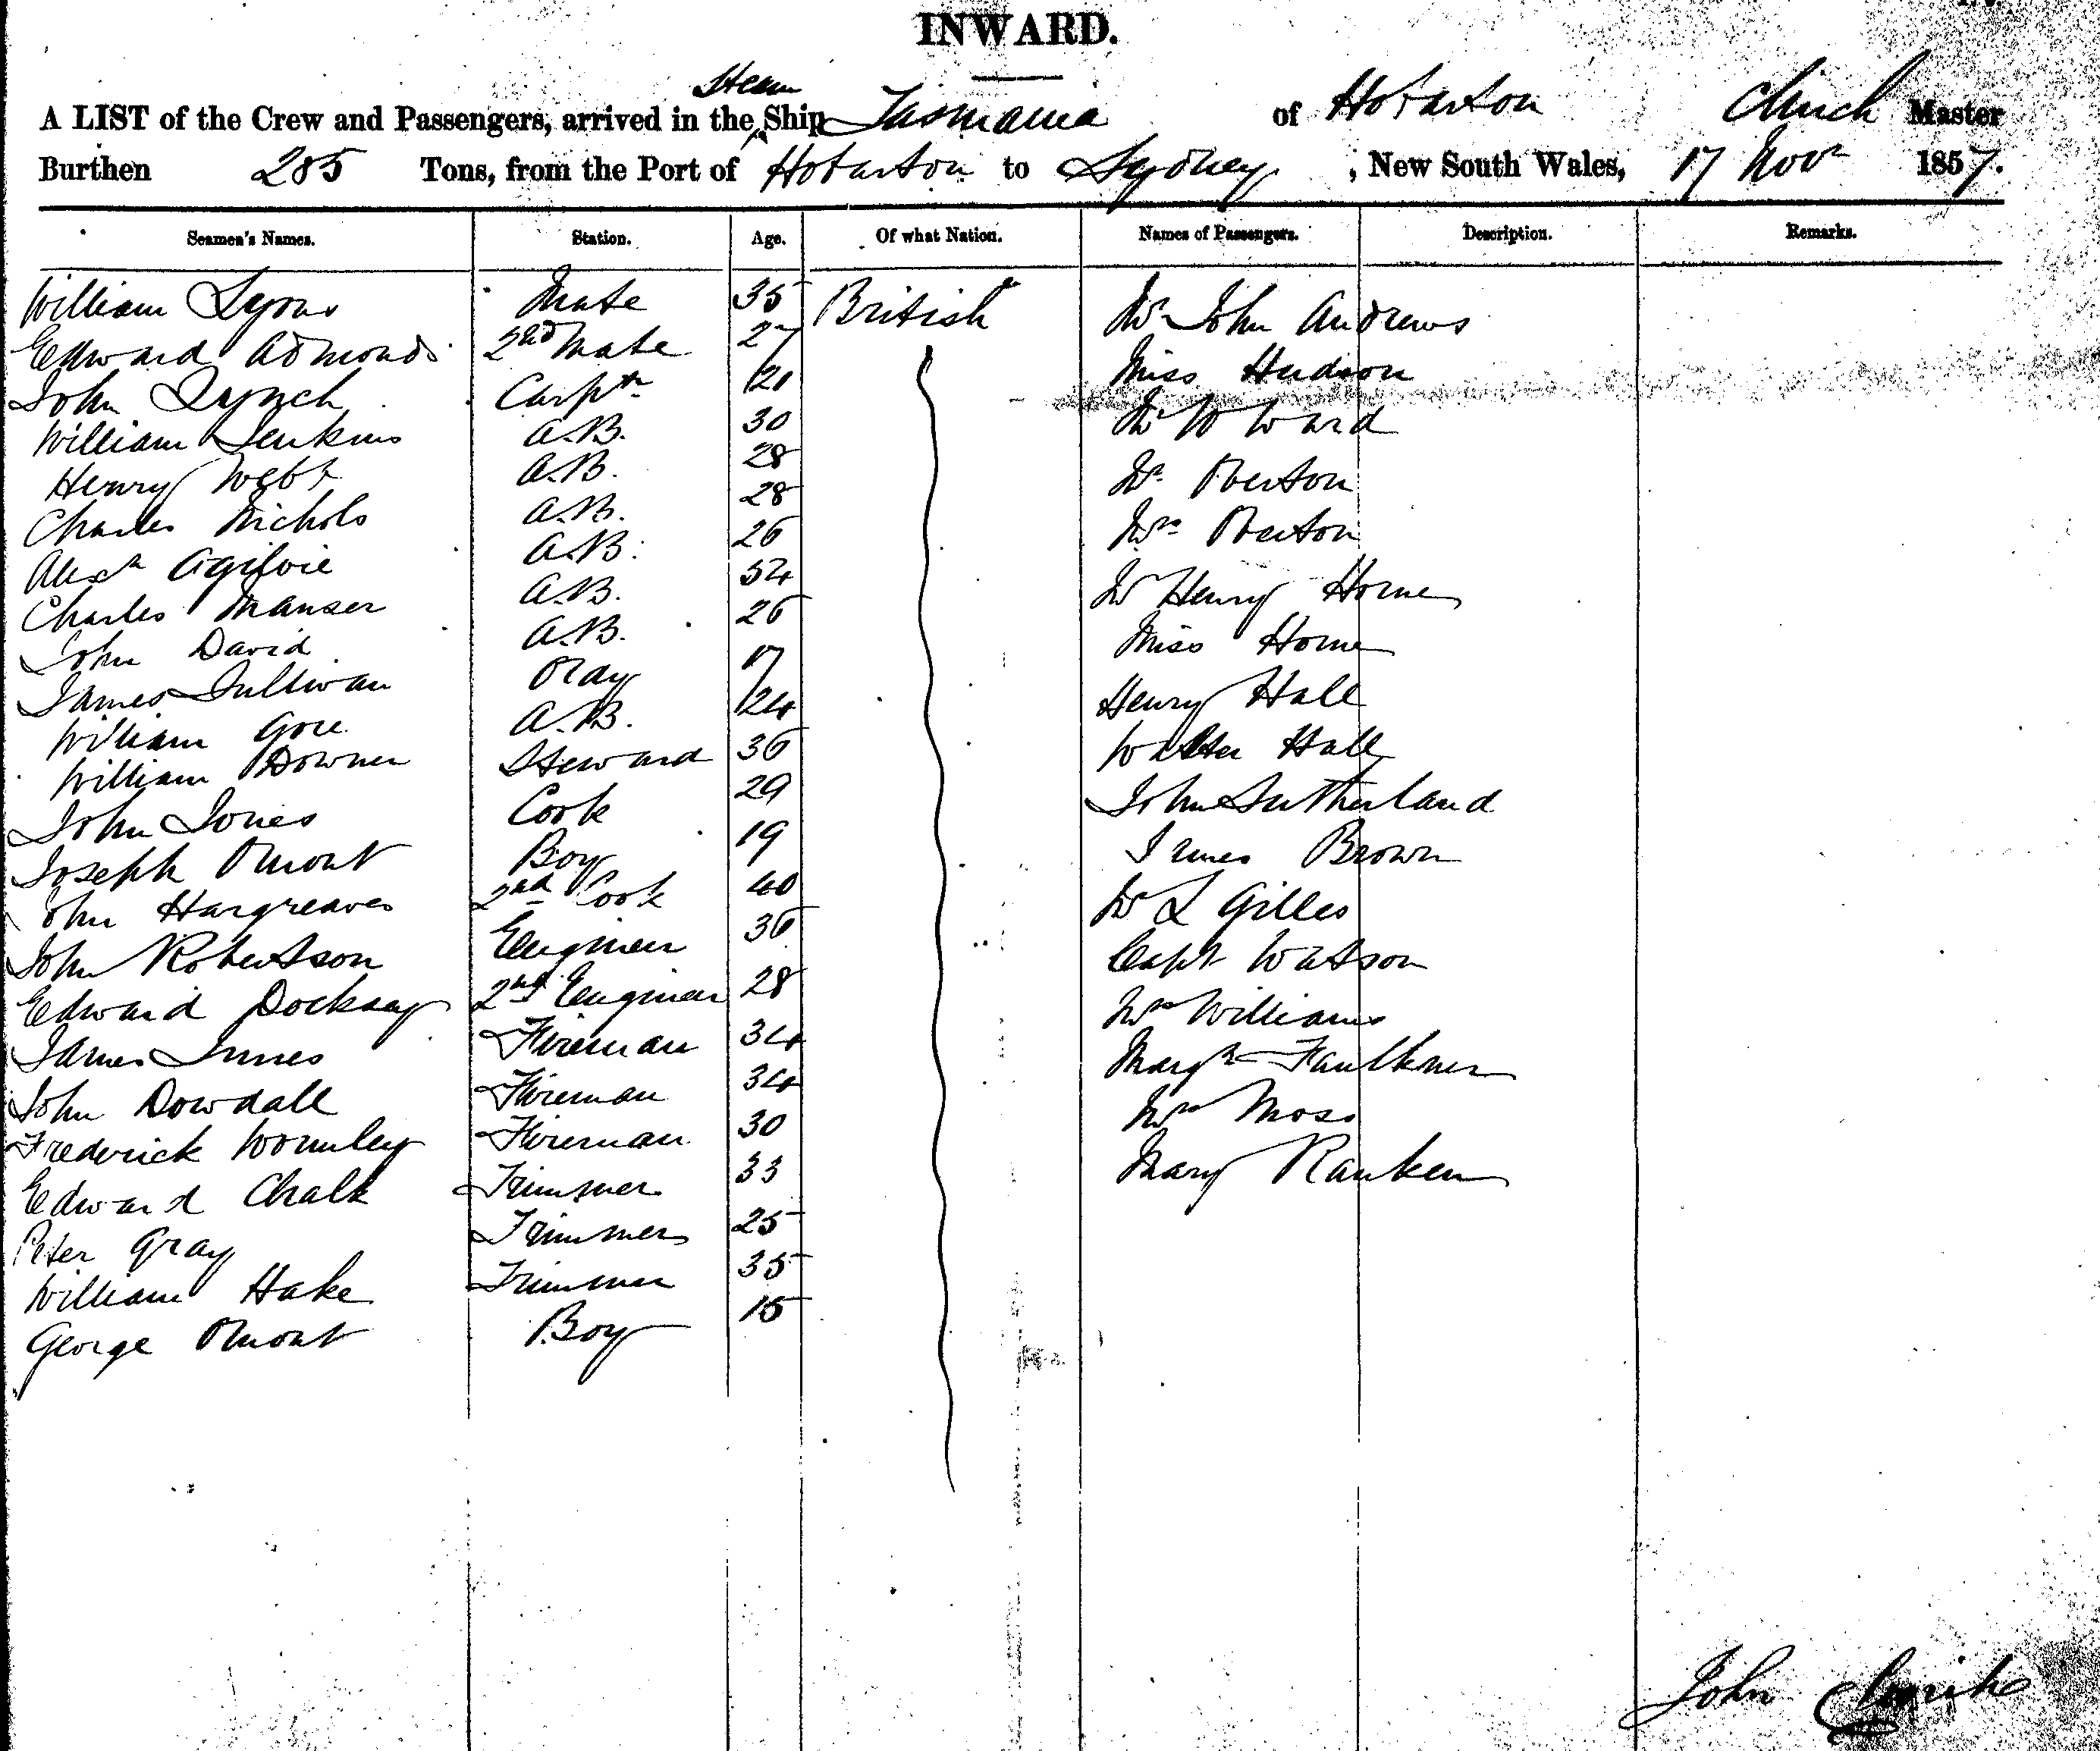 INWARD.
Steam
A LIST of the Crew and Passengers, arrived in the Ship Tasmania of Hobarton Clinch Master
Burthen 285 Tons, from the Port of Hobarton to Sydney, New South Wales, 17 Novr 1857.
Seamen's Names. Station. Age. Of what Nation. Names of Passengers. Description. Remarks.
William Lyons Mate 35 British Mr John Andrews
Edward Admonds 2nd Mate 27 Miss Hudson
John Lynch Carptr 21 Mr W Ward
William Jenkins A.B. 30 Mr Overton
Henry Webb A.B. 28 Mrs Overton
Charles Nichols A.B. 28 Mr Henry Horne
Alexr Ogilvie A.B. 26 Miss Horne
Charles Manser A.B. 54 Henry Hall
John David A.B. 26 Walter Hall
James Sullivan 17 John Sutherland
William Gore A.B. 24 James Brown
William Downer Steward 36 Mr L Gilles
John Jones Cook 29 Capt Watson
Joseph Omont Boy 19 Mrs Williams
John Hargreaves 2nd Cook 40 Margt Faulkner
John Robertson Engineer 36 Mrs Moss
Edward Docksay 2nd Engineer 28 Mary Ranken
James Innes Fireman 34
John Dowdall Fireman 34
Frederick Wormley Fireman 30
Edward Chalk Trimmer 33
Peter Gray Trimmer 25
William Hake Trimmer 35
George Omont Boy 15
John Clinch